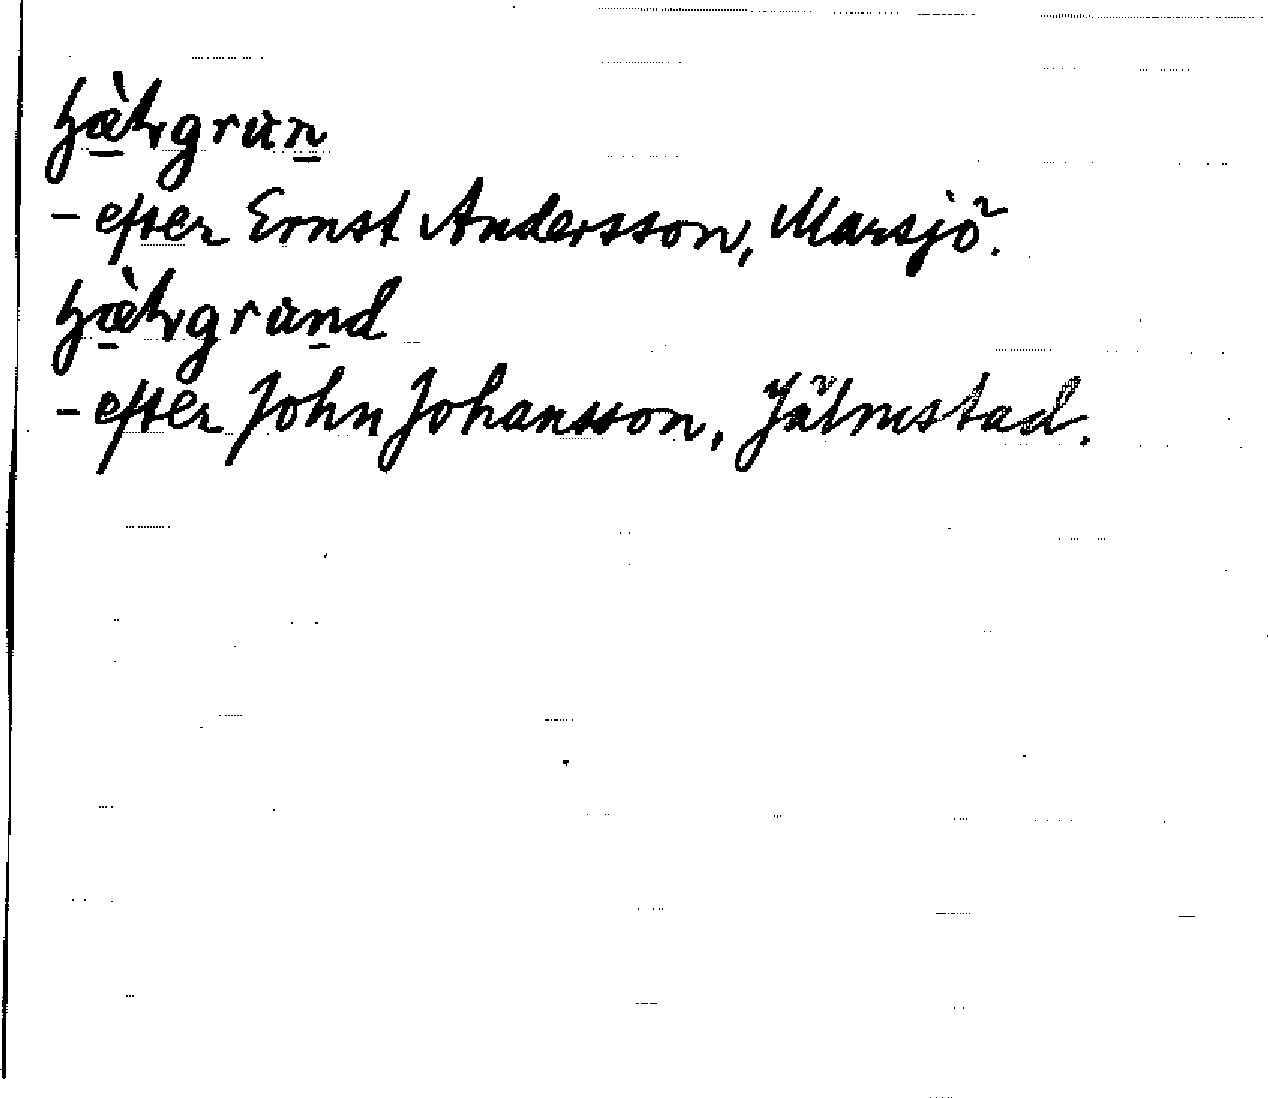 hæ̀tvgrùn
- efter Ernst Andersson, Marsjö.
hæ̀tvgrùnd
- efter John Johansson, Jälmstad.